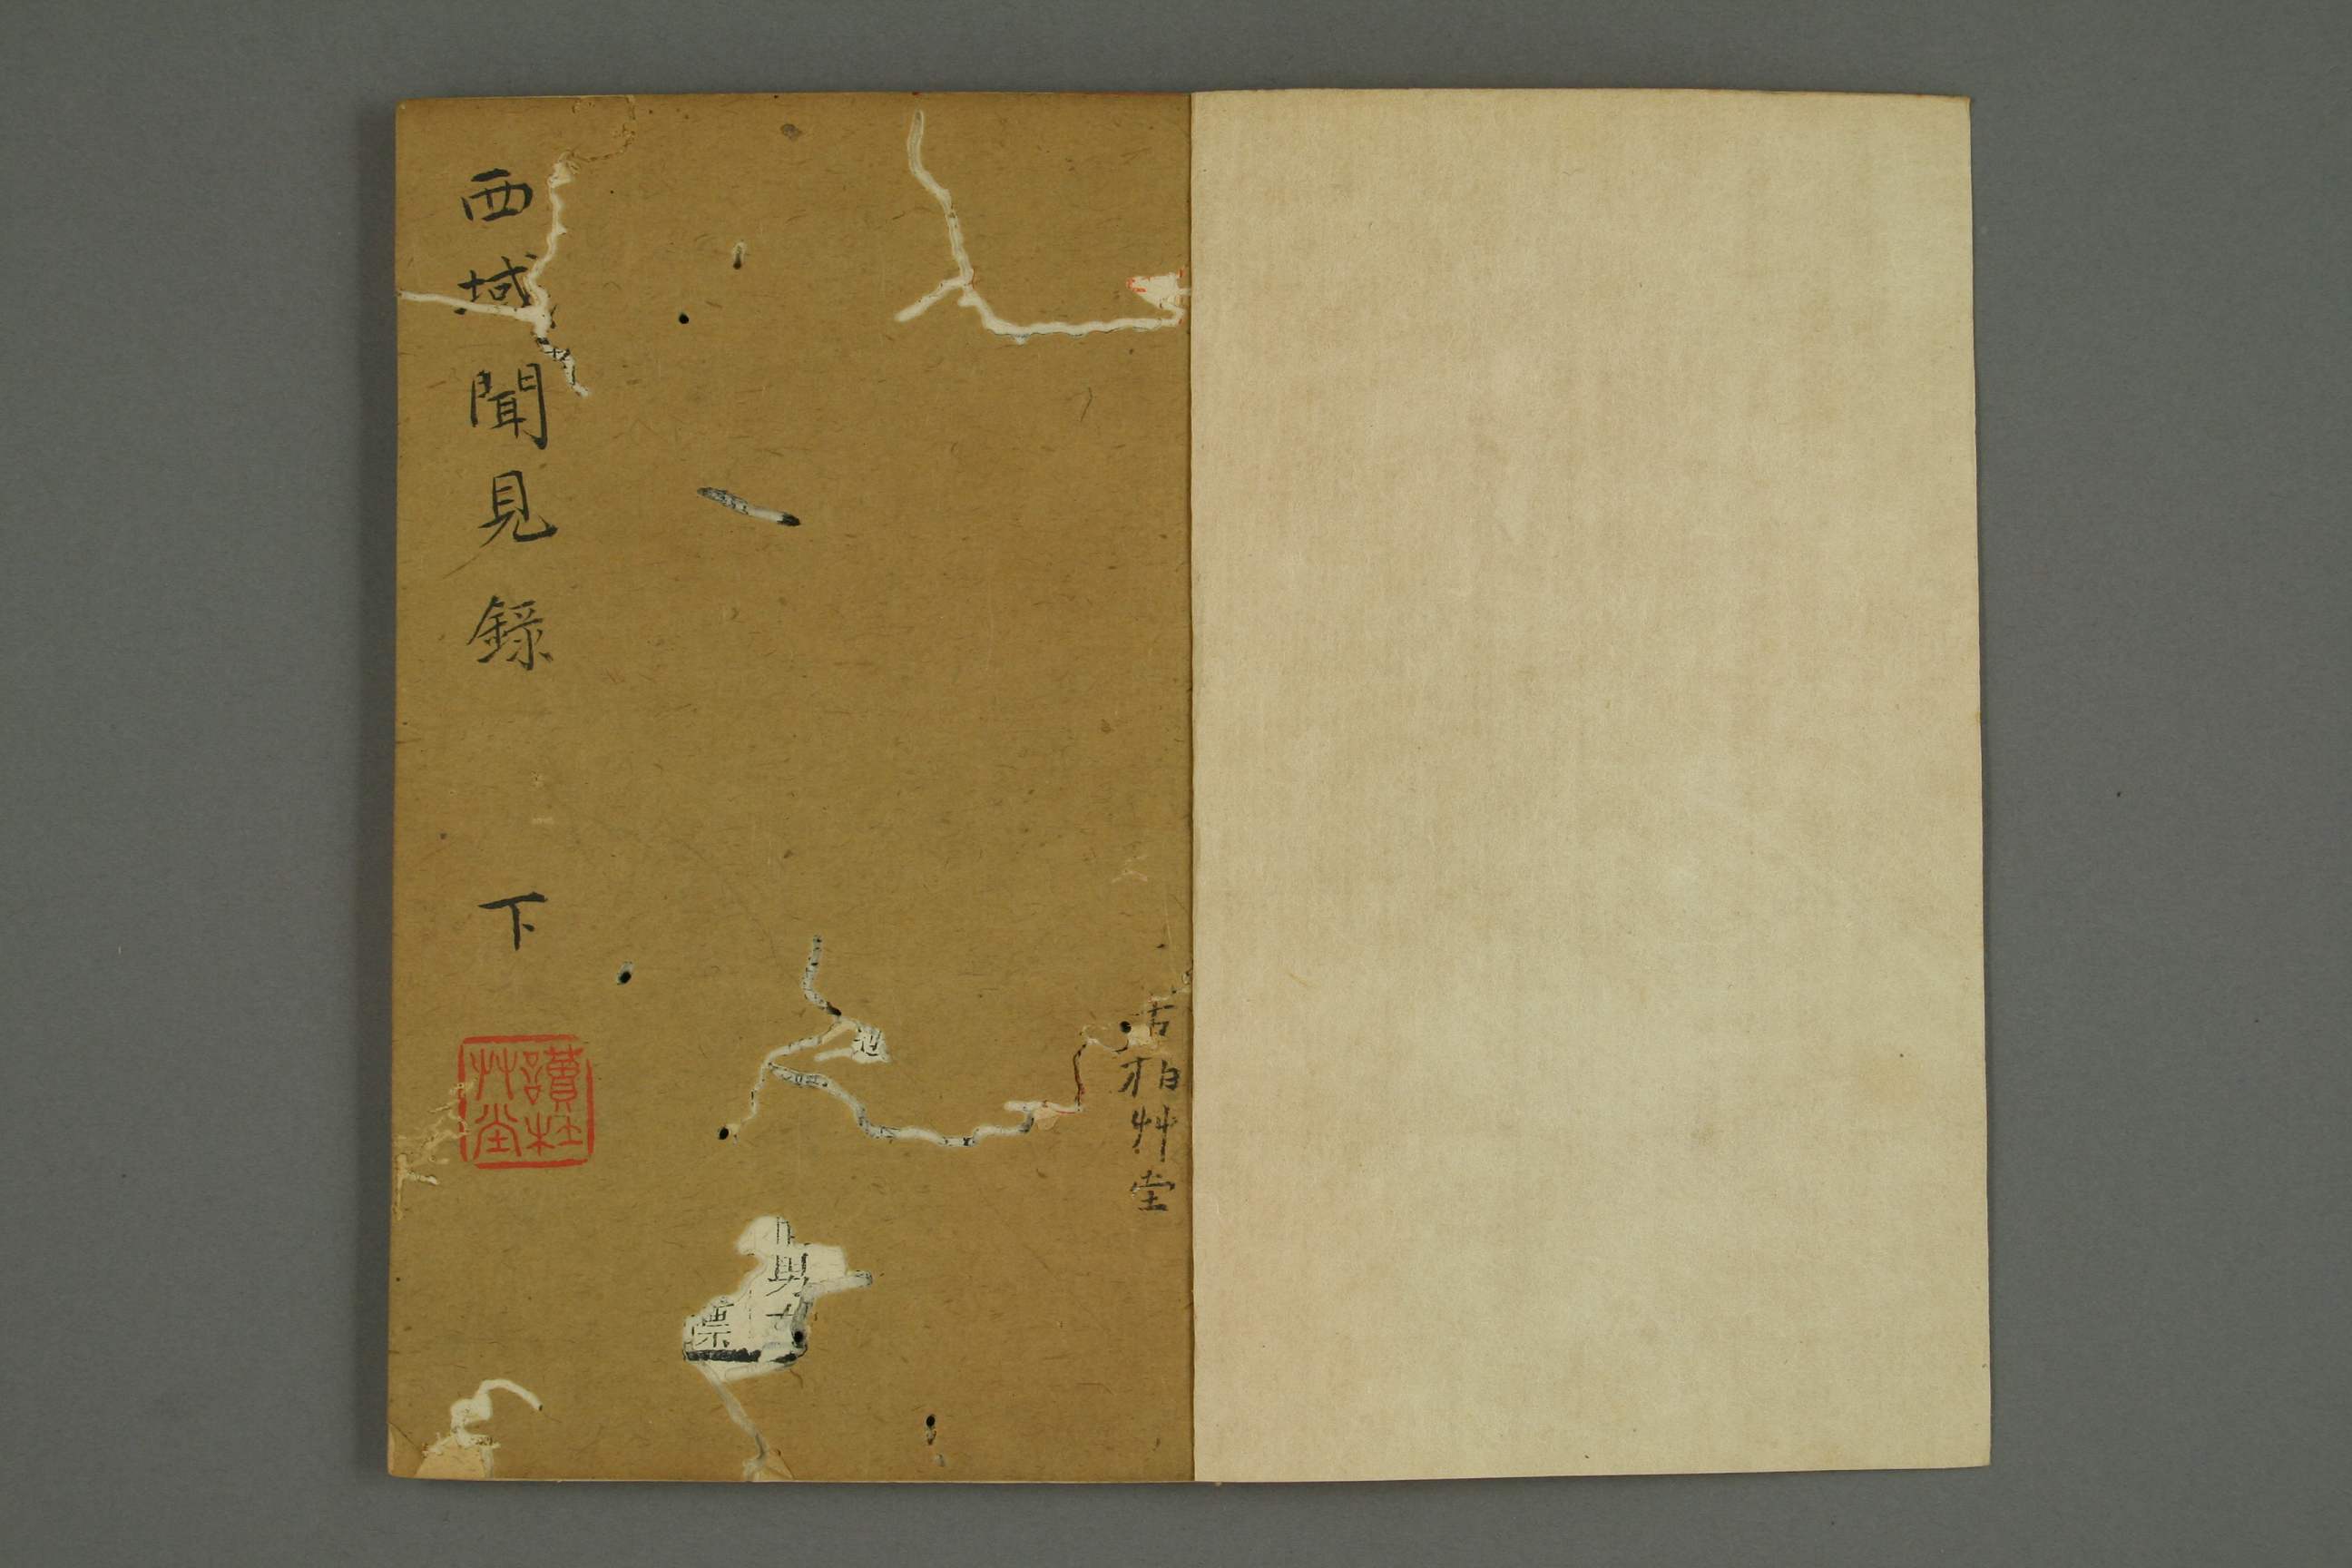 古柏艸堂
西域聞見錄 下
讀杜
艸堂
男女
標